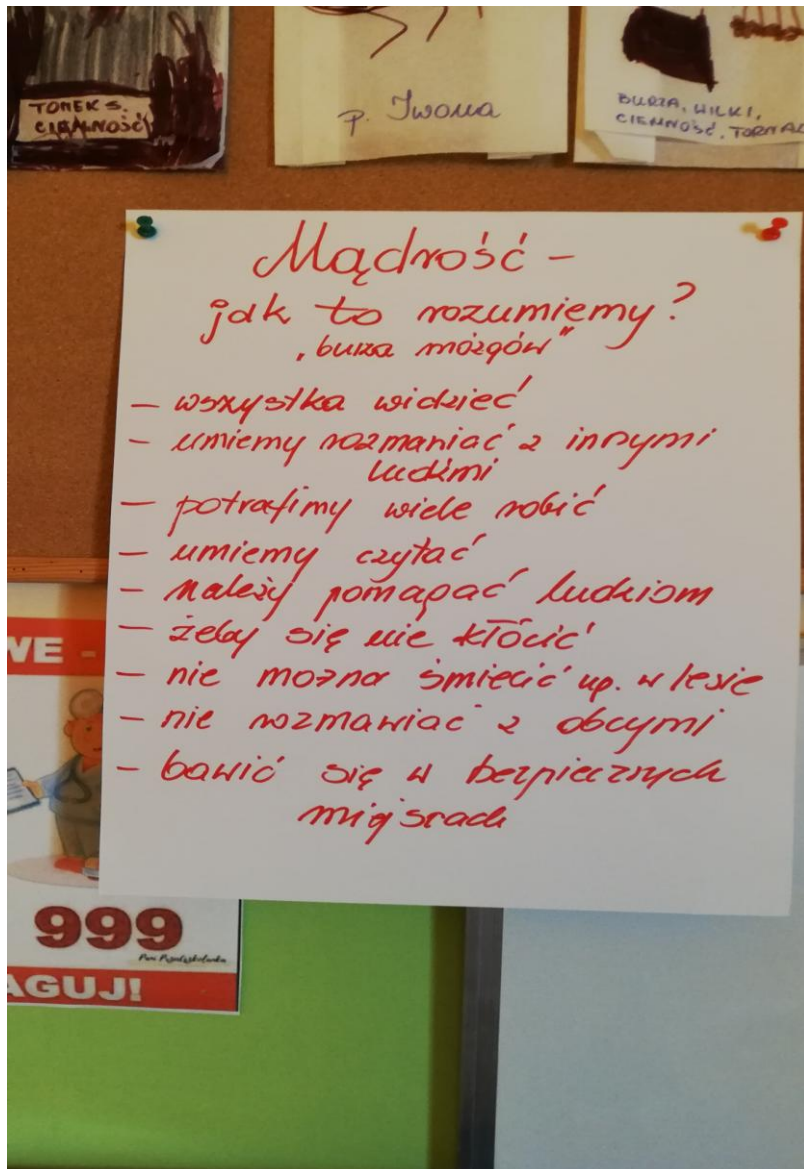 TOMEK S.
CIEMNOŚĆ
p. Iwona
BURZA, WILKI,
CIEMNOŚĆ, TORNAD
Mądrość -
jak to rozumiemy?
"burza mózgów"
- wszystko widzieć
- umiemy rozmawiać z innymi
ludźmi
- potrafimy wiele robić
- umiemy czytać
- należy pomagać ludziom
- żeby się nie kłócić
- nie można śmiecić np. w lesie
- nie rozmawiać z obcymi
- bawić się w bezpiecznych
miejscach
WE -
999
Pani Przedszkolanka
AGUJ!